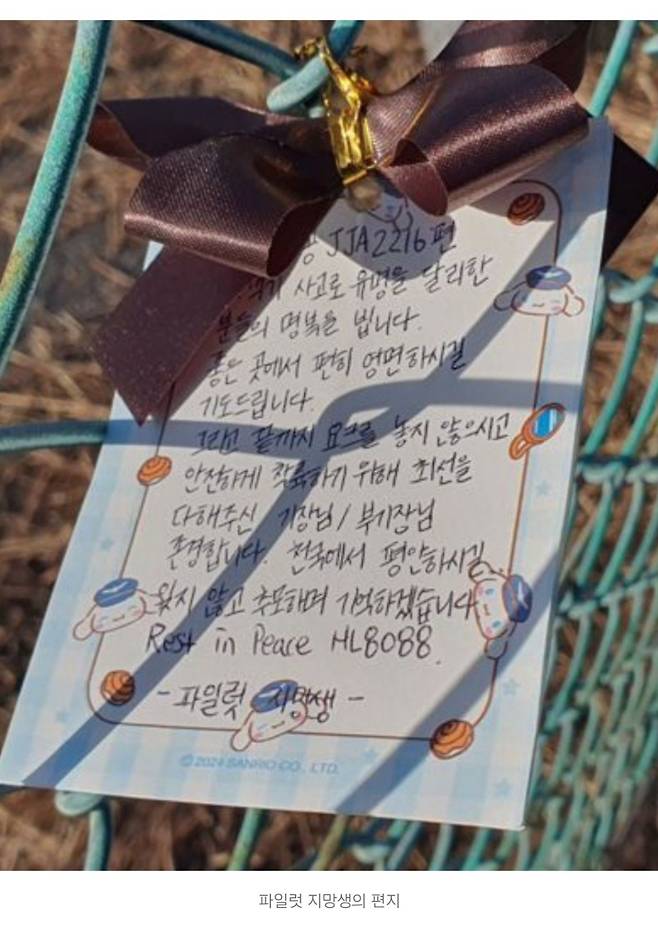 JJA2216편
사고로 유명을 달리한
분들의 명복을 빕니다.
좋은 곳에서 편히 영면하시길
기도드립니다.
그리고 끝까지 요크를 놓지 않으시고
안전하게 착륙하기 위해 최선을
다해주신 기장님/부기장님
존경합니다. 천국에서 평안하시길
잊지 않고 추모하며 기억하겠습니다
Rest in Peace HL8088.
-파일럿 지망생-
©2024 SANRIO CO., LTD.
파일럿 지망생의 편지